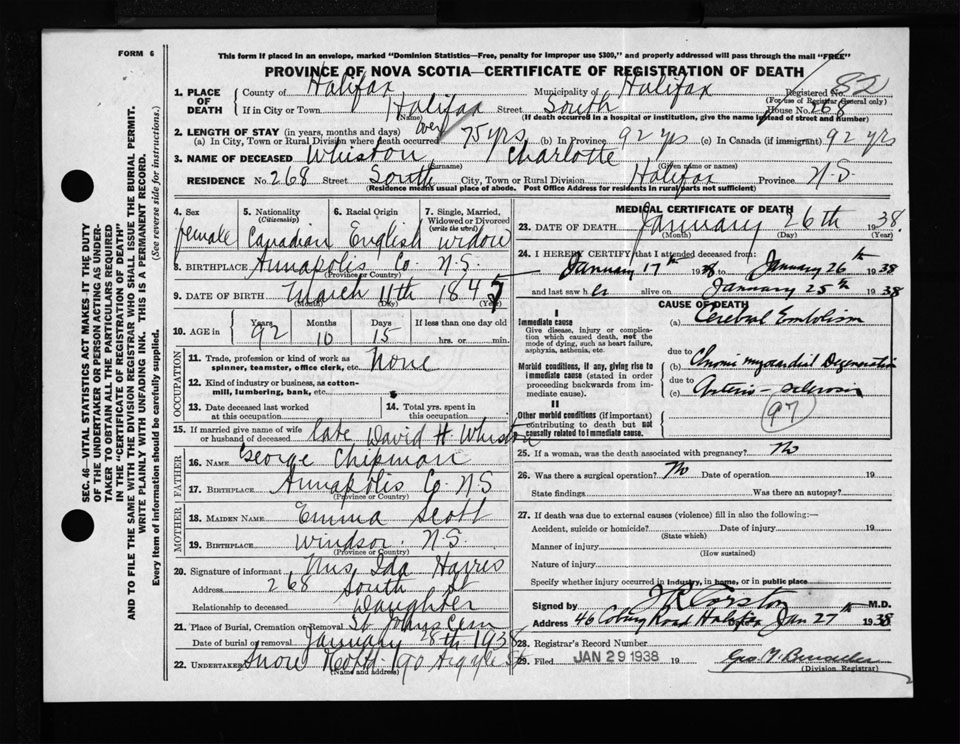 FORM 6
This form if placed in an envelope, marked "Dominion Statistics—Free, penalty for improper use $300," and properly addressed will pass through the mail "FREE"
PROVINCE OF NOVA SCOTIA—CERTIFICATE OF REGISTRATION OF DEATH
1. PLACE OF DEATH County of Halifax Municipality of Halifax Registered No. 82
(For use of Registrar General only)
If in City or Town Halifax Street South House No. 268
(Name) (If death occurred in a hospital or institution, give the name instead of street and number)
2. LENGTH OF STAY (in years, months and days)
(a) In City, Town or Rural Division where death occurred over 75 yrs (b) In Province 92 yrs (c) In Canada (if immigrant) 92 yrs
3. NAME OF DECEASED Whiston Charlotte
(Surname) (Given name or names)
RESIDENCE No. 268 Street South City, Town or Rural Division Halifax Province N.S.
(Residence means usual place of abode. Post Office Address for residents in rural parts not sufficient)
4. Sex female
5. Nationality (Citizenship) Canadian
6. Racial Origin English
7. Single, Married, Widowed or Divorced (write the word) widow
8. BIRTHPLACE Annapolis Co. N.S.
(Province or Country)
9. DATE OF BIRTH March 11th 1845
(Month) (Day) (Year)
10. AGE in Years 92 Months 10 Days 15 If less than one day old hrs. or min.
OCCUPATION
11. Trade, profession or kind of work as spinner, teamster, office clerk, etc. None
12. Kind of industry or business, as cotton-mill, lumbering, bank, etc.
13. Date deceased last worked at this occupation
14. Total yrs. spent in this occupation
15. If married give name of wife or husband of deceased late David H. Whiston
FATHER
16. NAME George Chipman
17. BIRTHPLACE Annapolis Co N.S
(Province or Country)
MOTHER
18. MAIDEN NAME Emma Scott
19. BIRTHPLACE Windsor. N.S.
(Province or Country)
20. Signature of informant Mrs Ida Harris
Address 268 South St
Relationship to deceased Daughter
21. Place of Burial, Cremation or Removal St Johns Cem
Date of burial or removal January 28th 1938
22. UNDERTAKER Snow 90 Argyle St
(Name and address)
MEDICAL CERTIFICATE OF DEATH
23. DATE OF DEATH January 26th 1938.
(Month) (Day) (Year)
24. I HEREBY CERTIFY that I attended deceased from:
January 17th 1938 to January 26th 1938
and last saw her alive on January 25th 1938
CAUSE OF DEATH
I
Immediate cause
Give disease, injury or complication which caused death, not the mode of dying, such as heart failure, asphyxia, asthenia, etc.
(a) Cerebral Embolism
due to
Morbid conditions, if any, giving rise to immediate cause (stated in order proceeding backwards from immediate cause).
(b) Chronic myocardial Degeneration
due to
(c) Arterio-sclerosis
97
II
Other morbid conditions (if important) contributing to death but not causally related to immediate cause.
25. If a woman, was the death associated with pregnancy? No
26. Was there a surgical operation? No Date of operation 19
State findings Was there an autopsy?
27. If death was due to external causes (violence) fill in also the following:—
Accident, suicide or homicide? Date of injury 19
(State which)
Manner of injury
(How sustained)
Nature of injury
Specify whether injury occurred in industry, in home, or in public place
Signed by J R Corston M.D.
Address 46 Coburg Road Halifax Date Jan 27th 1938
28. Registrar's Record Number
29. Filed JAN 29 1938 19
(Division Registrar)
SEC. 46—VITAL STATISTICS ACT MAKES IT THE DUTY
OF THE UNDERTAKER OR PERSON ACTING AS UNDER-
TAKER TO OBTAIN ALL THE PARTICULARS REQUIRED
IN THE "CERTIFICATE OF REGISTRATION OF DEATH"
AND TO FILE THE SAME WITH THE DIVISION REGISTRAR WHO SHALL ISSUE THE BURIAL PERMIT.
WRITE PLAINLY WITH UNFADING INK. THIS IS A PERMANENT RECORD.
Every item of information should be carefully supplied. (See reverse side for instructions.)